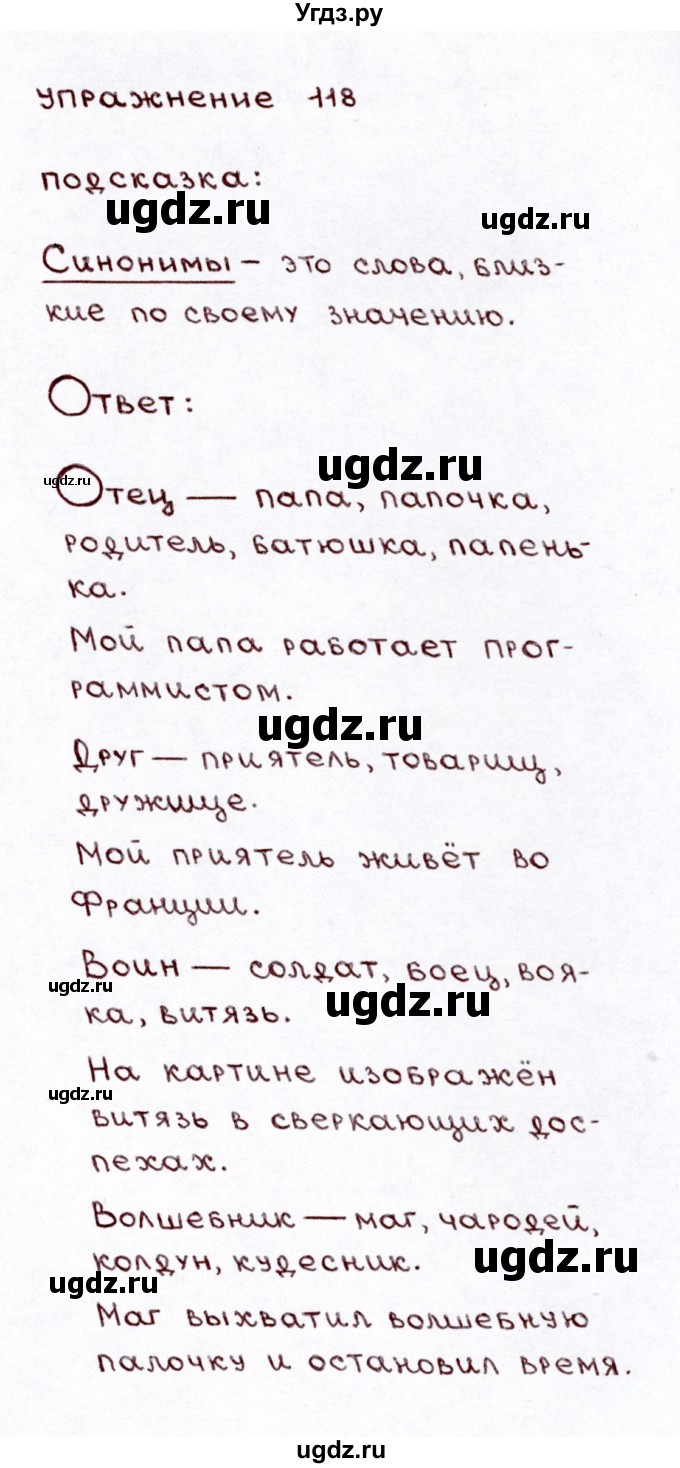 Угдз.ру
упражнение 118
подсказка:
ugdz.ru
ugdz.ru
Синонимы – это слова, близ-
кие по своему значению.
Ответ:
ugdz.ru
ugdz.ru
Отец — папа, папочка,
родитель, батюшка, папень-
ка.
Мой папа работает прог-
раммистом.
ugdz.ru
Друг — приятель, товарищ,
дружище.
Мой приятель живёт во
Франции.
Воин — солдат, боец, воя-
ugdz.ru
ugdz.ru
ка, витязь.
На картине изображён
ugdz.ru
витязь в сверкающих дос-
пехах.
Волшебник — маг, чародей,
колдун, кудесник.
ugdz.ru
ugdz.ru
Маг выхватил волшебную
палочку и остановил время.
ugdz.ru